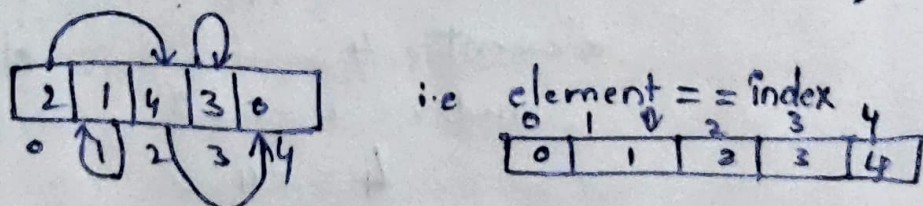 2 1 4 3 0
0 1 2 3 4
i.e element == index
0 1 2 3 4
0 1 2 3 4